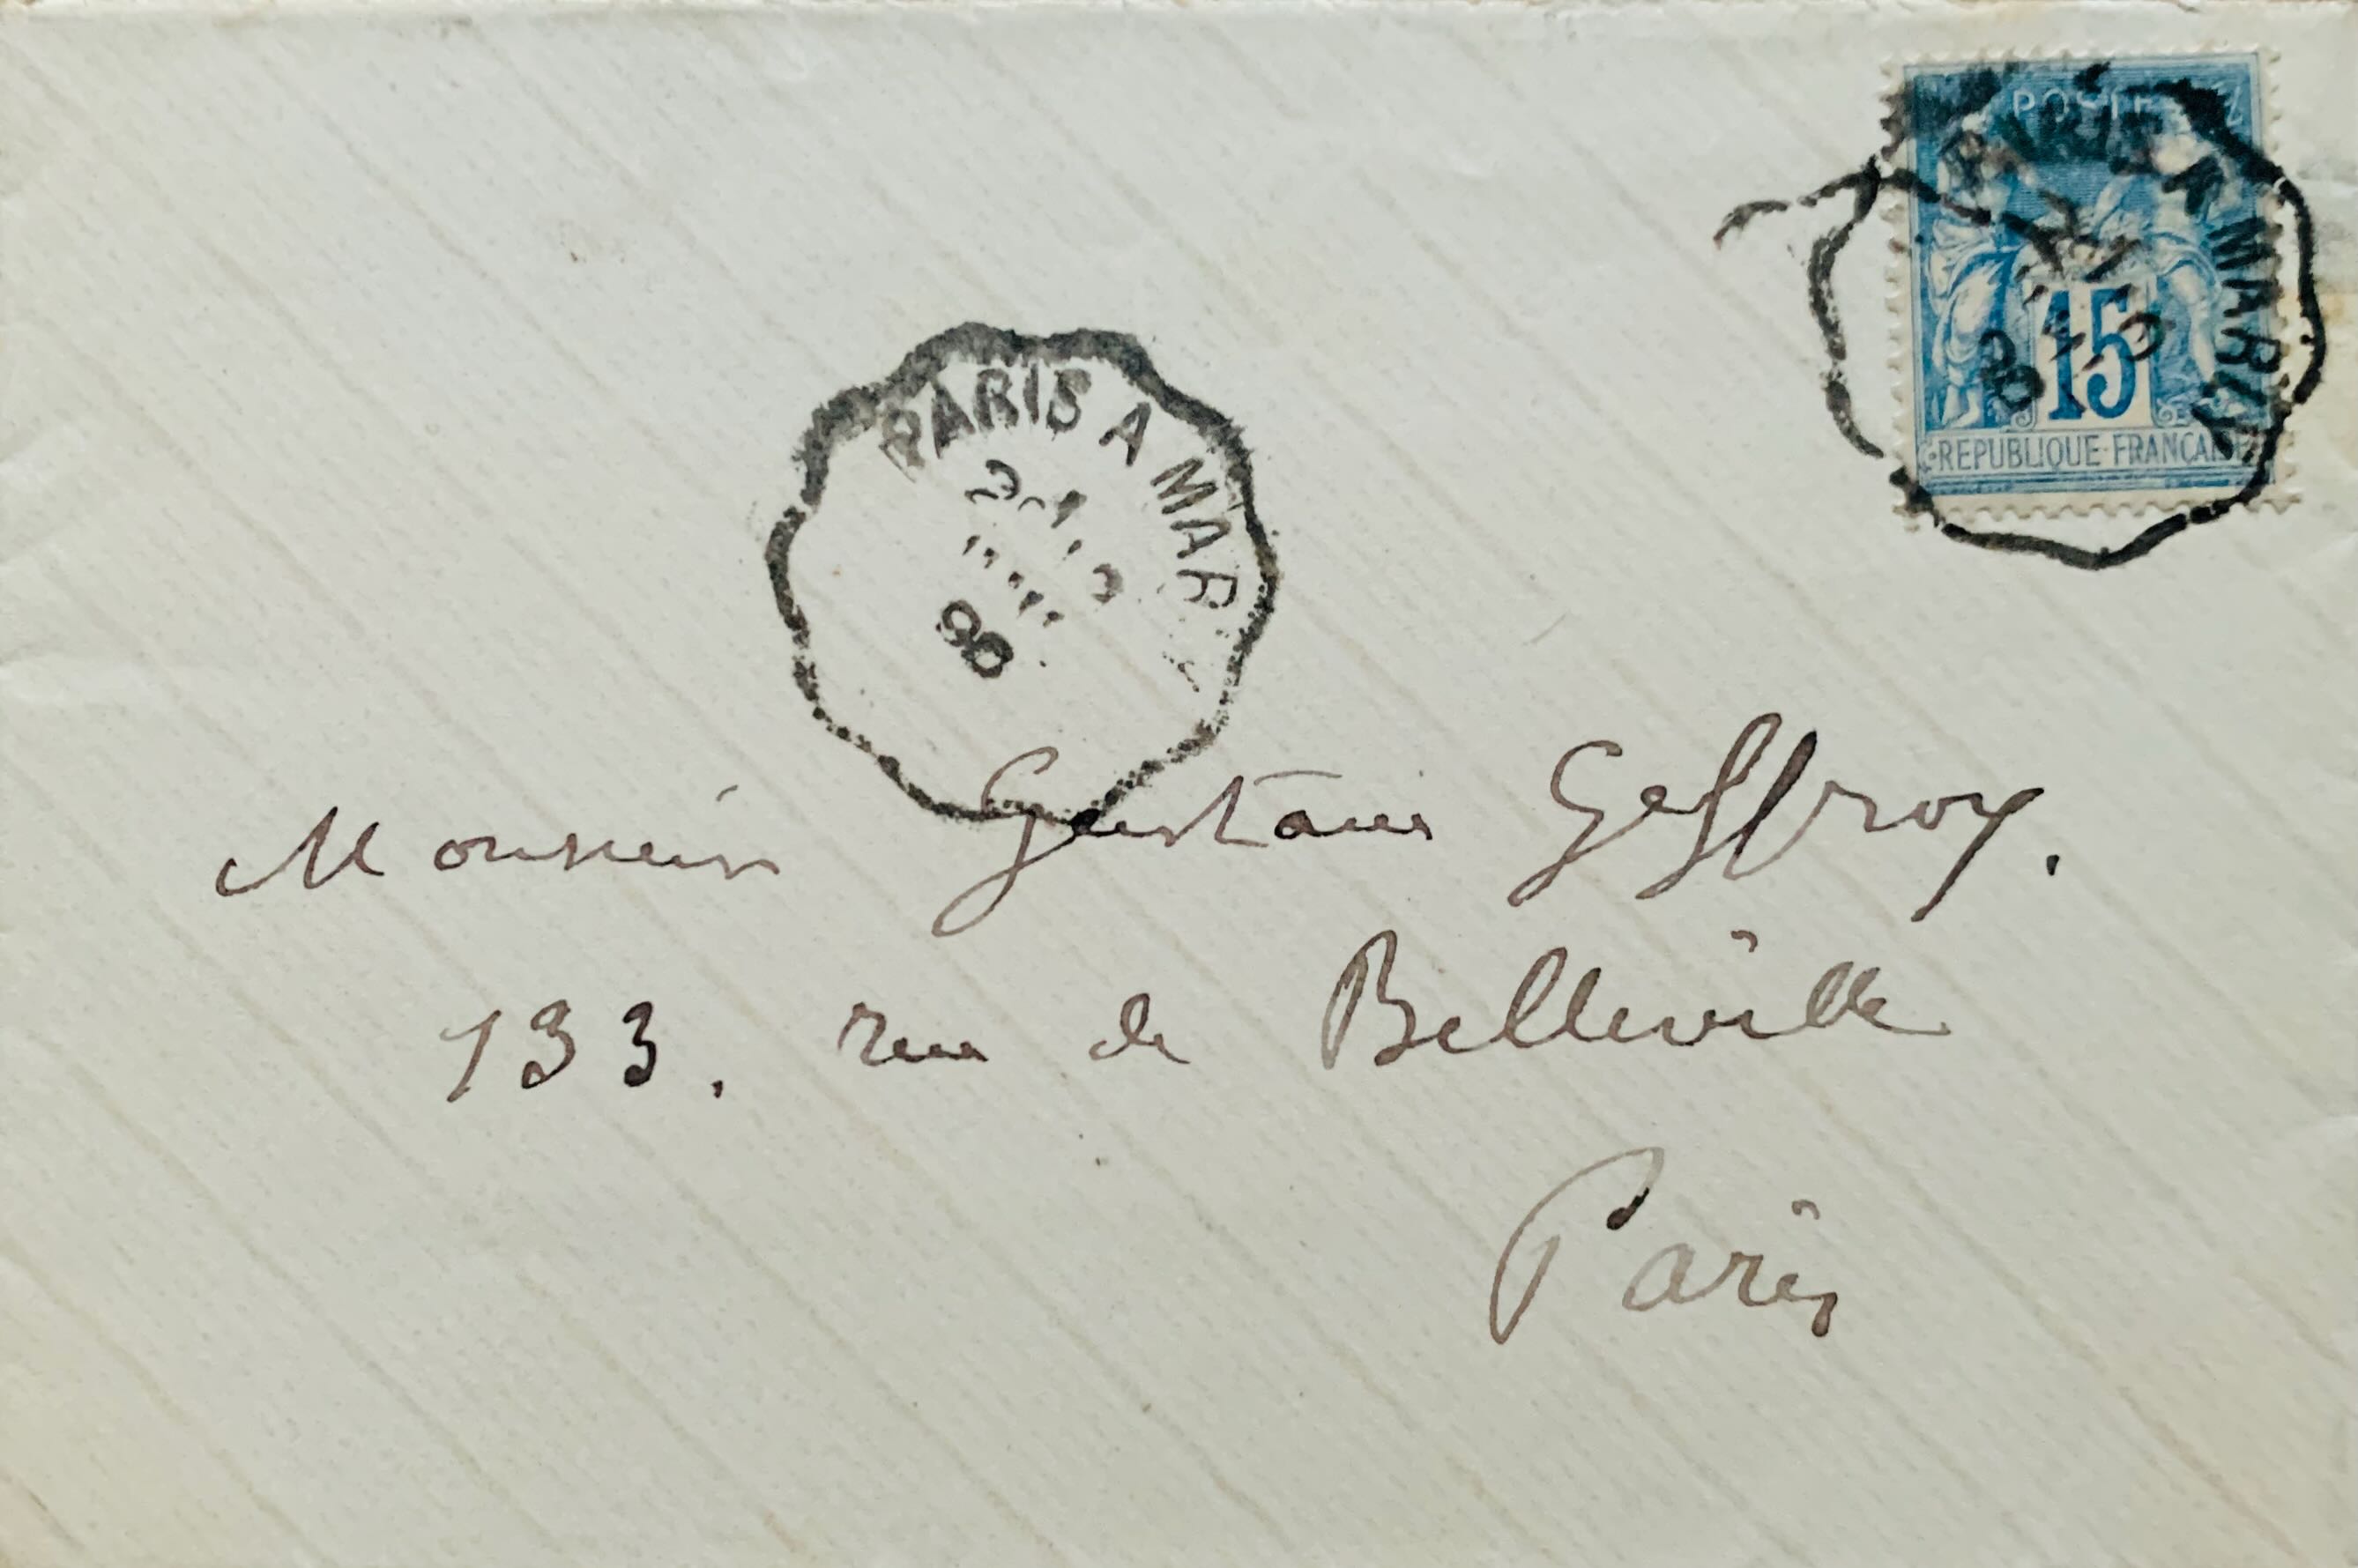 POSTES
15
REPUBLIQUE FRANCAISE
PARIS A MARLY
90
PARIS A MARLY
90
Monsieur Gustave Geffroy.
133. rue de Belleville
Paris